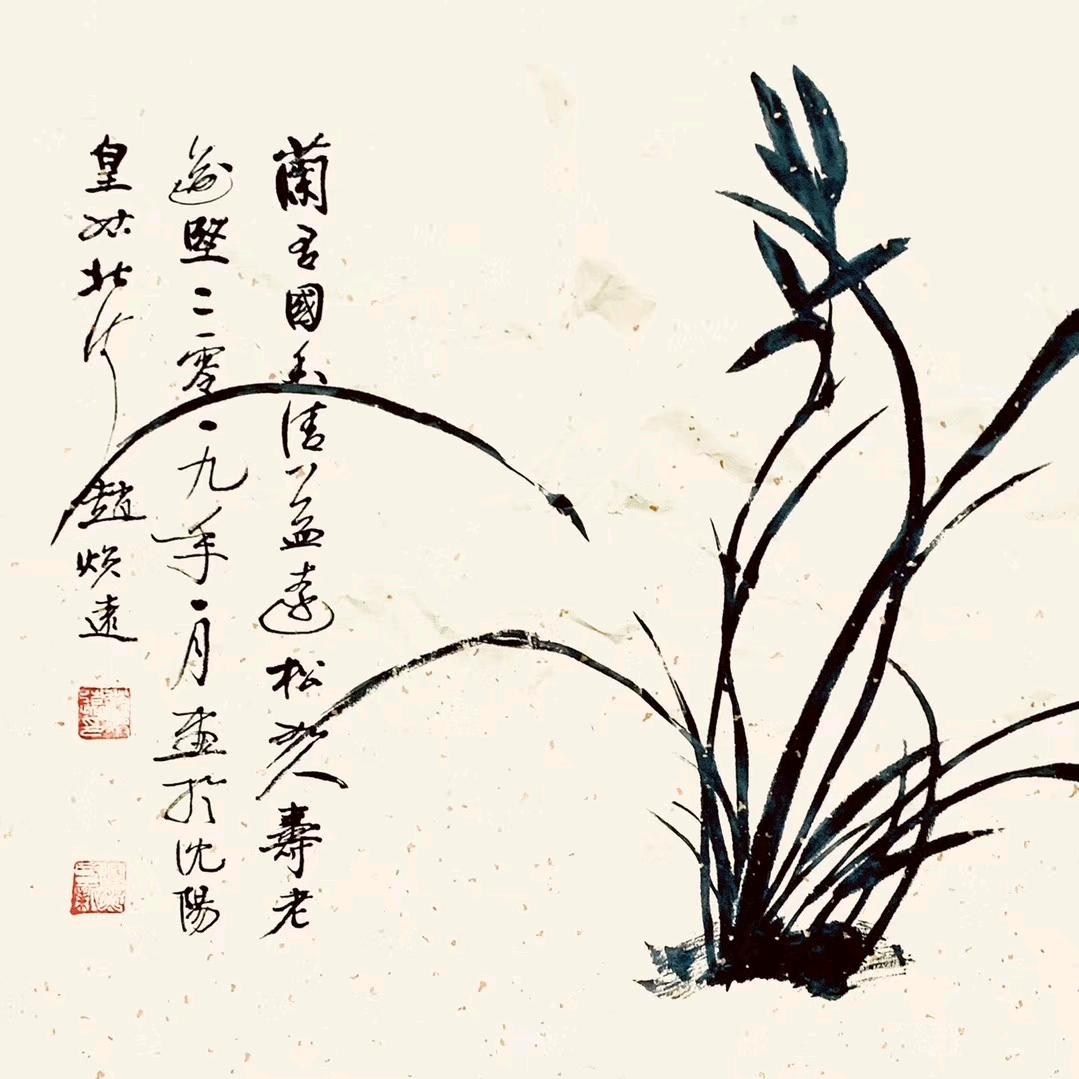 蘭有國香清益遠松如人壽老
逾堅二零一九年一月畫於沈陽
皇姑北河趙煥遠